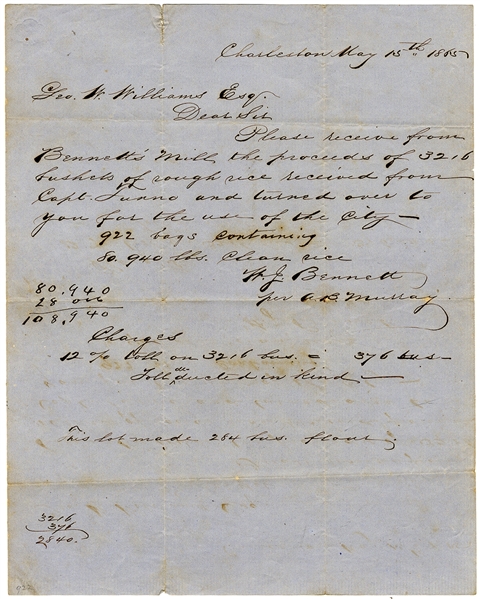 Charleston May 15th 1865
Geo. W. Williams Esq.
Dear Sir
Please receive from
Bennett's Mill the proceeds of 3216
bushels of rough rice received from
Capt. Tunno and turned over to
you for the use of the City —
922 bags containing
80.940 lbs. Clean rice
W. J. Bennett
per A. B. Murray
80.940
28 000
108,940
Charges
12 % Toll on 3216 bus. = 376 bus —
Toll deducted in kind —
This lot made 284 bus. flour.
3216
376
2840.